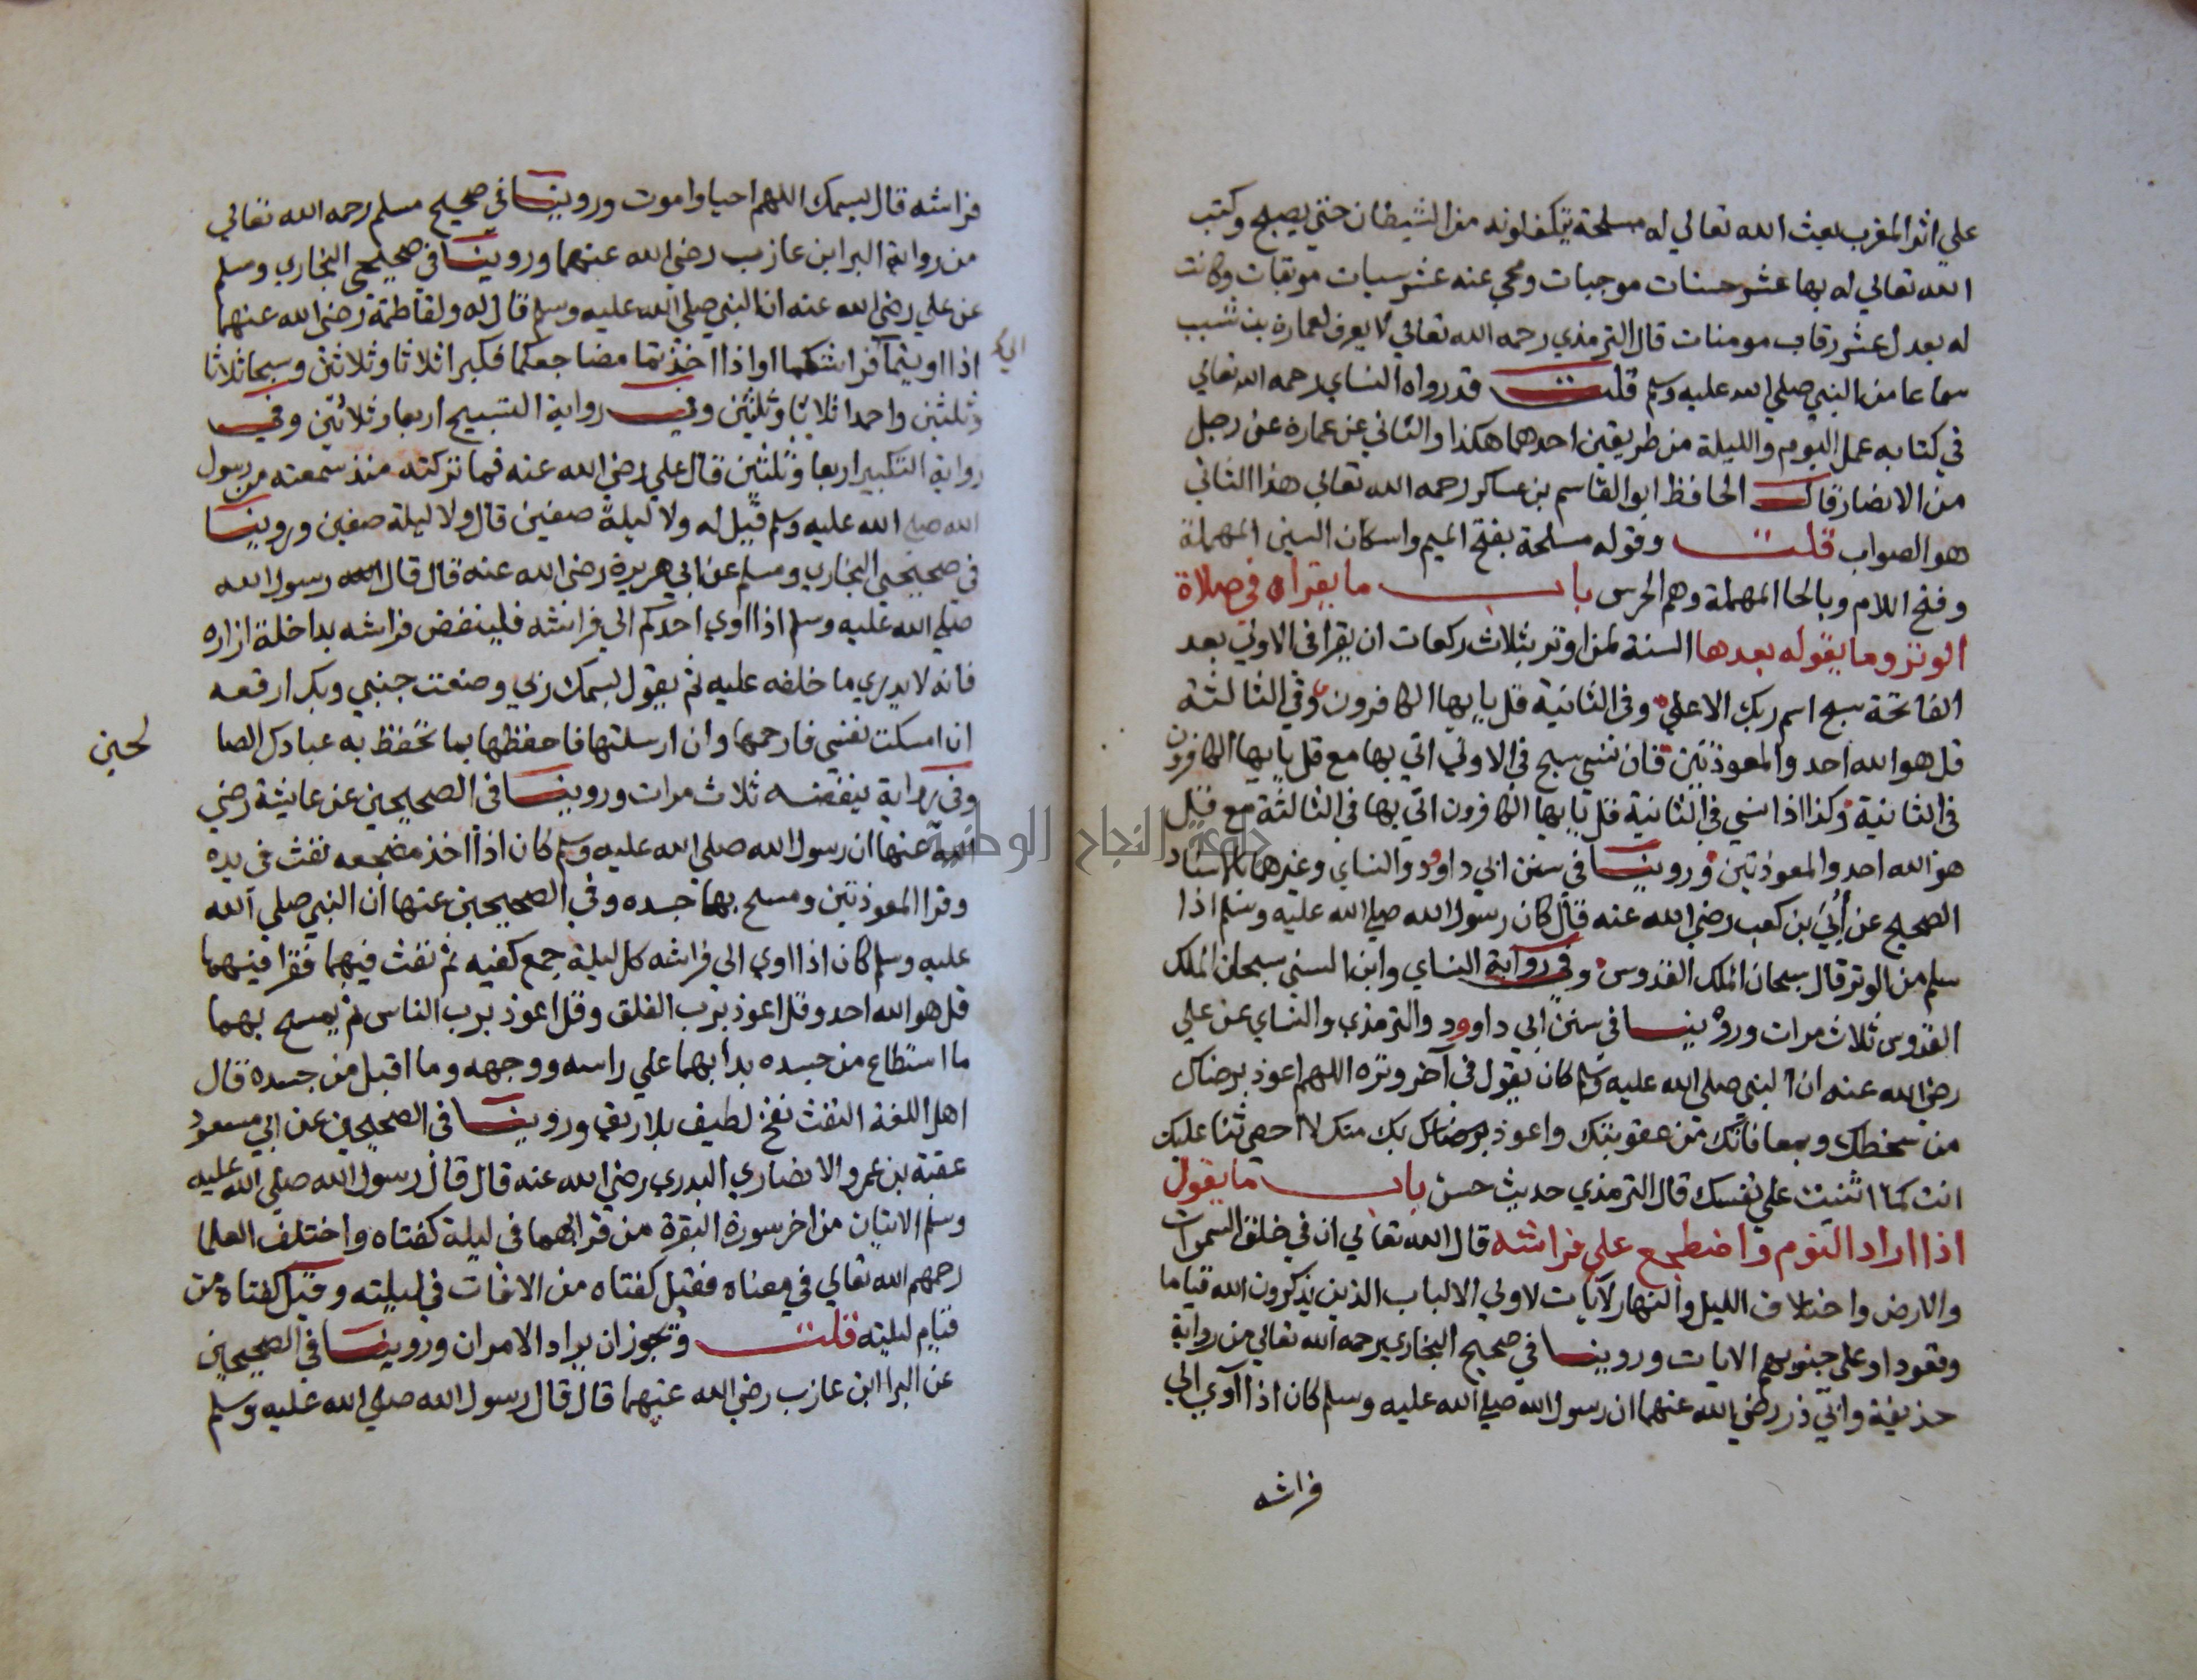 علي اثر المغرب بعث الله تعالي له مسلحة يتكفلونه من الشيطان حتي يصبح وكتب
الله تعالي له بها عشر حسنات موجبات ومحي عنه عشر سيات موبقات وكانت
له بعدل عشر رقاب مومنات قال الترمذي رحمه الله تعالي لا يعرف لعمارة بن شبيب
سماعا من النبي صلي الله عليه وسلم قلت قد رواه النساي رحمه الله تعالي
في كتابه عمل اليوم والليلة من طريقين احدهما هكذا والثاني عن عمارة عن رجل
من الانصار قال الحافظ ابو القاسم بن عساكر رحمه الله تعالي هذا الثاني
هو الصواب قلت وقوله مسلحة بفتح الميم واسكان السين المهملة
وفتح اللام وبالحا المهملة وهم الحرس باب ما يقراه في صلاة
الوتر وما يقوله بعدها السنة لمن اوتر بثلاث ركعات ان يقرا في الاولي بعد
الفاتحة سبح اسم ربك الاعلي وفي الثانية قل يا يها الكافرون وفي الثالثة
قل هو الله احد والمعوذتين فان نسي سبح في الاولي اتي بها مع قل يا يها الكافرون
في الثانية وكذا اذا نسي في الثانية قل يا يها الكافرون اتي بها في الثالثة مع قل
هو الله احد والمعوذتين وروينا في سنن ابي داوود والنساي وغيرهما بالاسناد
الصحيح عن أبي بن كعب رضي الله عنه قال كان رسول الله صلي الله عليه وسلم اذا
سلم من الوتر قال سبحان الملك القدوس وفي رواية النساي وابن السني سبحان الملك
القدوس ثلاث مرات وروينا في سنن ابي داوود والترمذي والنساي عن علي
رضي الله عنه ان النبي صلي الله عليه وسلم كان يقول في آخر وتره اللهم اعوذ برضاك
من سخطك وبمعافاتك من عقوبتك واعوذ بك منك لا احصي ثنا عليك
انت كما اثنيت علي نفسك قال الترمذي حديث حسن باب ما يقول
اذا اراد النوم واضطجع علي فراشه قال الله تعالي ان في خلق السموات
والارض واختلاف الليل والنهار لآيات لاولي الالباب الذين يذكرون الله قياما
وقعودا وعلي جنوبهم الايات وروينا في صحيح البخاري رحمه الله تعالي من رواية
حذيفة وابي ذر رضي الله عنهما ان رسول الله صلي الله عليه وسلم كان اذا آوي الي
فراشه
فراشه قال بسمك اللهم احيا واموت وروينا في صحيح مسلم رحمه الله تعالي
من رواية البرا ابن عازب رضي الله عنهما وروينا في صحيحي البخاري ومسلم
عن علي رضي الله عنه ان النبي صلي الله عليه وسلم قال له ولفاطمة رضي الله عنهما
اذا اويتما فراشكما او اذا اخذتما مضاجعكما فكبرا ثلاثا وثلاثين وسبحا ثلاثا
وثلثين واحمدا ثلاثا وثلثين وفي رواية التسبيح اربعا وثلاثين وفي
رواية التكبير اربعا وثلثين قال علي رضي الله عنه فما تركته منذ سمعته من رسول
الله صلي الله عليه وسلم قيل له ولا ليلة صفين قال ولا ليلة صفين وروينا
في صحيحي البخاري ومسلم عن ابي هريرة رضي الله عنه قال قال رسول الله
صلي الله عليه وسلم اذا اوي احدكم الي فراشه فلينفض فراشه بداخلة ازاره
فانه لا يدري ما خلفه عليه ثم يقول بسمك ربي وضعت جنبي وبك ارفعه
ان امسكت نفسي فارحمها وان ارسلتها فاحفظها بما تحفظ به عبادك الصا
لحين
وفي رواية ينفضه ثلاث مرات وروينا في الصحيحين عن عايشة رضي
الله عنها ان رسول الله صلي الله عليه وسلم كان اذا اخذ مضجعه نفث في يده
وقرا المعوذتين ومسح بها جسده وفي الصحيحين عنها ان النبي صلي الله
عليه وسلم كان اذا اوي الي فراشه كل ليلة جمع كفيه ثم نفث فيهما فقرا فيهما
قل هو الله احد وقل اعوذ برب الفلق وقل اعوذ برب الناس ثم يمسح بهما
ما استطاع من جسده بدا بهما علي راسه ووجهه وما اقبل من جسده قال
اهل اللغة النفث نفخ لطيف بلا ريق وروينا في الصحيحين عن ابي مسعود
عقبة بن عمرو الانصاري البدري رضي الله عنه قال قال رسول الله صلي الله عليه
وسلم الايتان من اخر سورة البقرة من قرا بهما في ليلة كفتاه واختلف العلما
رحمهم الله تعالي في معناه فقيل كفتاه من الافات في ليلته وقيل كفتاه من
قيام ليلته قلت ويجوز ان يراد الامران وروينا في الصحيحين
عن البرا ابن عازب رضي الله عنهما قال قال رسول الله صلي الله عليه وسلم
جامعة النجاح الوطنية